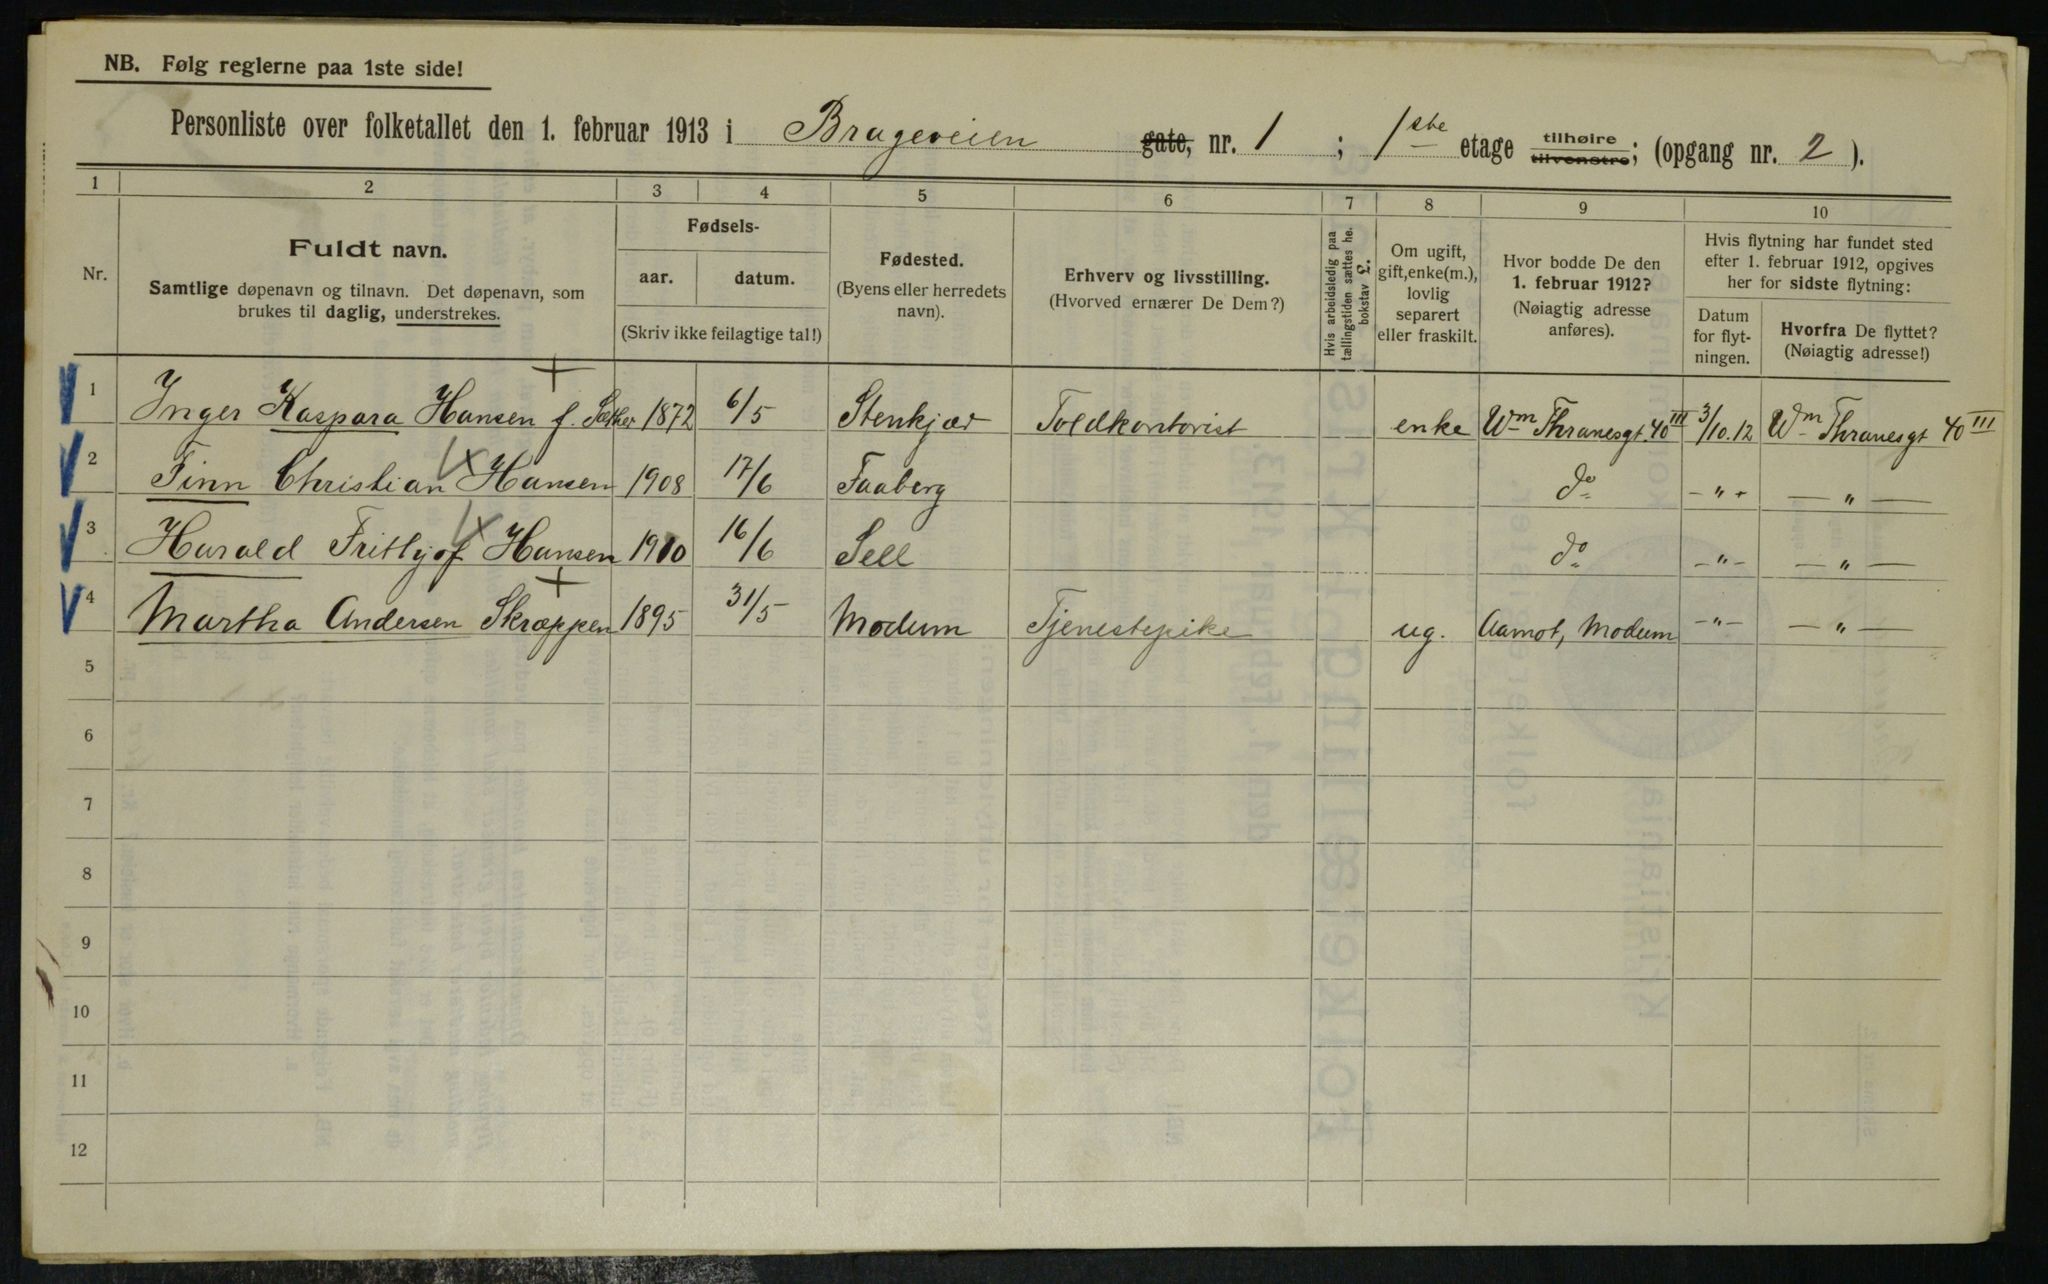 NB. Følg reglerne paa 1ste side!
Personliste over folketallet den 1. februar 1913 i Brageveien gate, nr. 1 ; 1ste etage tilhøire tilvenstre; (opgang nr. 2 ).
1 2 3 4 5 6 7 8 9 10
Nr.
Fuldt navn.
Samtlige døpenavn og tilnavn. Det døpenavn, som
brukes til daglig, understrekes.
Fødsels-
aar. datum.
(Skriv ikke feilagtige tal!)
Fødested.
(Byens eller herredets
navn).
Erhverv og livsstilling.
(Hvorved ernærer De Dem?)
Hvis arbeidsledig paa
tællingstiden sættes he.
bokstav L.
Om ugift,
gift, enke(m.),
lovlig
separert
eller fraskilt.
Hvor bodde De den
1. februar 1912?
(Nøiagtig adresse
anføres).
Hvis flytning har fundet sted
efter 1. februar 1912, opgives
her for sidste flytning:
Datum
for flyt-
ningen.
Hvorfra De flyttet?
(Nøiagtig adresse!)
1 Inger Kaspara Hansen f. Sæther 1872 6/5 Stenkjær Toldkontorist enke Wm Thranesgt 40 III 3/10.12 Wm Thranesgt 40 III
2 Finn Christian Hansen 1908 17/6 Faaberg do - " - — " —
3 Harald Frithjof Hansen 1910 16/6 Sell do - " - — " —
4 Martha Andersen Skræppen 1895 31/5 Modum Tjenestepike ug. Aamot, Modum - " - — " —
5
6
7
8
9
10
11
12